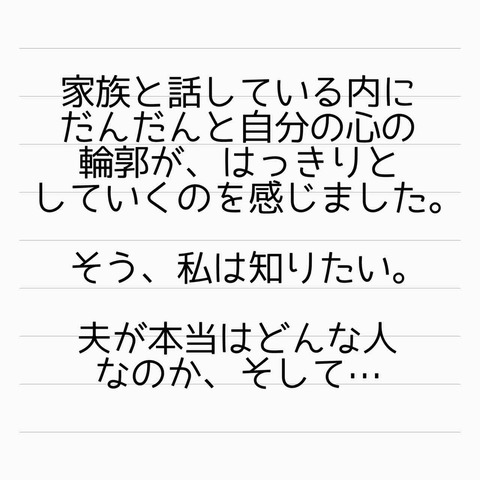 家族と話している内に
だんだんと自分の心の
輪郭が、はっきりと
していくのを感じました。
そう、私は知りたい。
夫が本当はどんな人
なのか、そして…